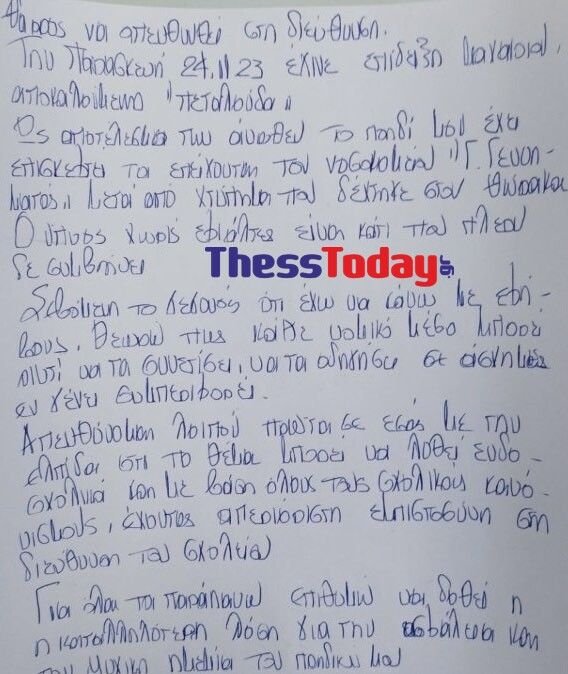 θάρρος να απευθυνθεί στη διεύθυνση.
Την Παρασκευή 24.11.23 έκανε επίδειξη
αποκαλούμενο "πεταλούδα"
Ως αποτέλεσμα των άνωθεν το παιδί μου έχει
επισκεφτεί τα επείγοντα του νοσοκομείου "Γ. Γεννη-
ματάς" μετά από χτύπημα που δέχτηκε στον θώρακα
Ο ύπνος χωρίς εφιάλτες είναι κάτι που πλέον
δε συμβαίνει
ThessToday.gr
Σεβόμενη το δεδομένο ότι έχω να κάνω με εφή-
βους, θεωρώ πως κάθε νομικό μέσο μπορεί
αντί να τα συνετίσει, να τα οδηγήσει σε άσχημες
εν γένει συμπεριφορές.
Απευθύνομαι λοιπόν πρώτα σε εσάς με την
ελπίδα ότι το θέμα μπορεί να λυθεί ενδο-
σχολικά και με βάση όλους τους σχολικούς κανο-
νισμούς, έχοντας απεριόριστη εμπιστοσύνη στη
διεύθυνση του σχολείου
Για όλα τα παραπάνω επιθυμώ να δοθεί η
η καταλληλότερη λύση για την ασφάλεια και
την ψυχική ηρεμία του παιδιού μου